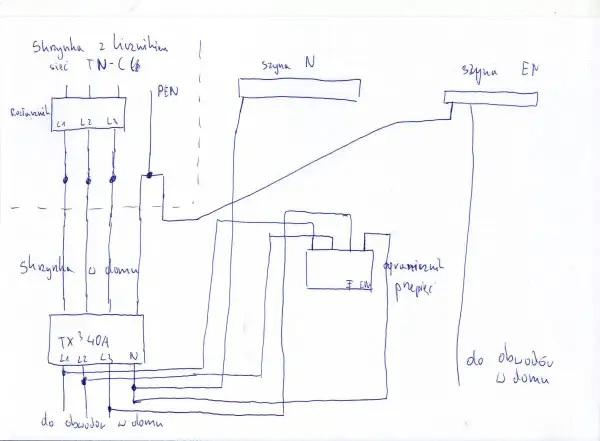 Skrzynka z licznikiem
sieć TN-C
szyna N
szyna EN
PEN
Rozłącznik
L1 L2 L3
Skrzynka w domu
ogranicznik
przepięć
TX³ 40A
L1 L2 L3 N
do obwodów
w domu
do obwodów w domu